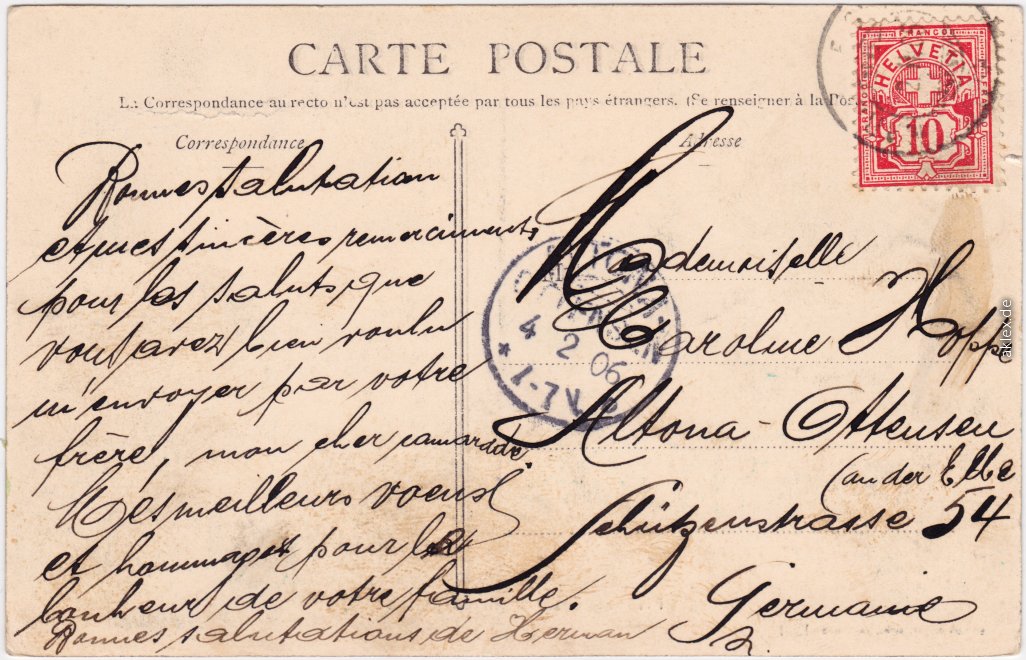 CARTE POSTALE
La Correspondance au recto n'est pas acceptée par tous les pays étrangers. (Se renseigner à la Pos
Correspondance
Bonnes salutation
et mes sincères remerciments
pour les saluts, que
vous avez bien voulu
m'envoyer par votre
frère, mon cher camarade.
Mes meilleurs voeux
et hommages pour le
bonheur de votre famille.
Bonnes salutations de Herman
Adresse
Mademoiselle
Caroline Hopp
Altona-Ottensen
(an der Elbe
Schützenstrasse 54
Germanie
FRANCO
HELVETIA
10
ALTONA-
OTTENSEN
4 2 06
* 1-7 V
akpool.de